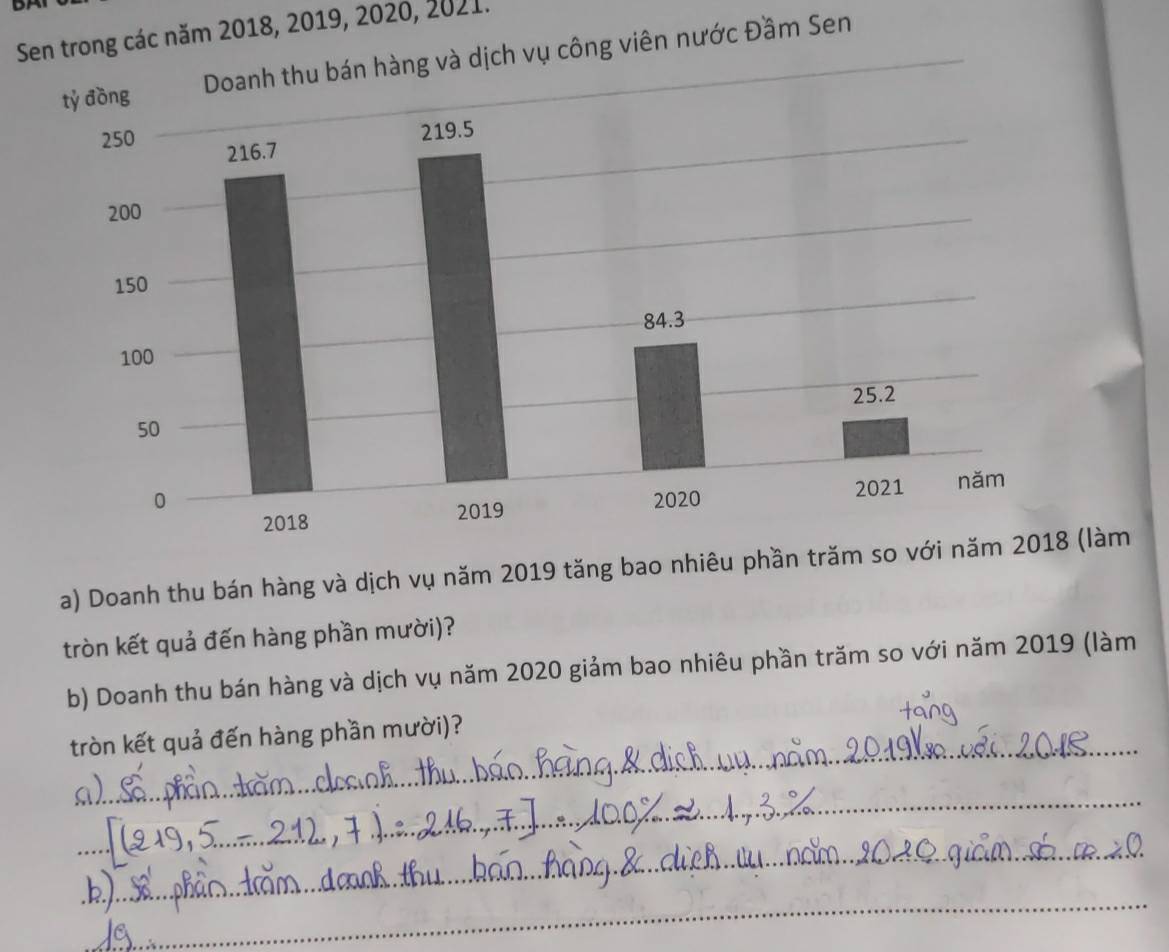 Sen trong các năm 2018, 2019, 2020, 2021.
Doanh thu bán hàng và dịch vụ công viên nước Đầm Sen
tỷ đồng
250
216.7
219.5
200
150
84.3
100
25.2
50
0
2018
2019
2020
2021
năm
a) Doanh thu bán hàng và dịch vụ năm 2019 tăng bao nhiêu phần trăm so với năm 2018 (làm
tròn kết quả đến hàng phần mười)?
b) Doanh thu bán hàng và dịch vụ năm 2020 giảm bao nhiêu phần trăm so với năm 2019 (làm
tròn kết quả đến hàng phần mười)?
tăng
a) Số phần trăm doanh thu bán hàng & dịch vụ năm 2019 so với 2018
[(219,5 - 212,7) : 216,7] . 100% ≈ 1,3 %
b) Số phần trăm doanh thu bán hàng & dịch vụ năm 2020 giảm só 20
19